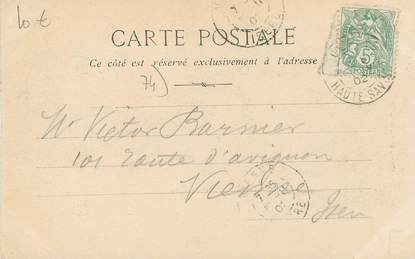 10 €
CARTE POSTALE
Ce côté est réservé exclusivement à l'adresse
74)
5
02
HAUTE-SAV
Mr Victor Barnier
101 route d'avignon
Vienne
Isere